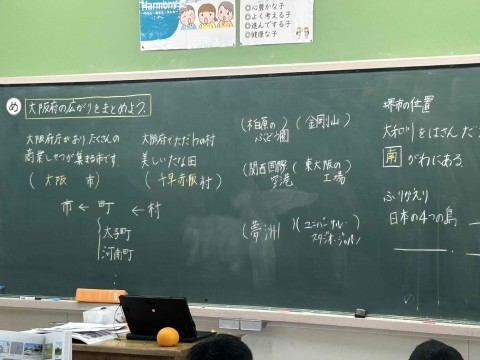 Harmony
◎心豊かな子
◎よく考える子
◎進んでする子
◎健康な子
め 大阪府の広がりをまとめよう。
大阪府庁がありたくさんの
商業しせつが集まる市です。
(大阪 市)
大阪府でただ1つの村
美しいたな田
(千早赤阪村)
市 ← 町 ← 村
太子町
河南町
(柏原の
ぶどう園)
(金剛山)
(関西国際
空港)
(東大阪の
工場)
(夢洲)
(ユニバーサル・
スタジオ・ジャパン)
堺市の位置
大和川をはさんだ
南 がわにある
ふりかえり
日本の4つの島